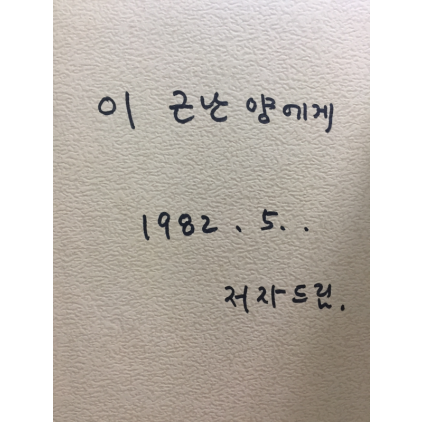 이 근난 양에게
1982. 5. .
저자드림.